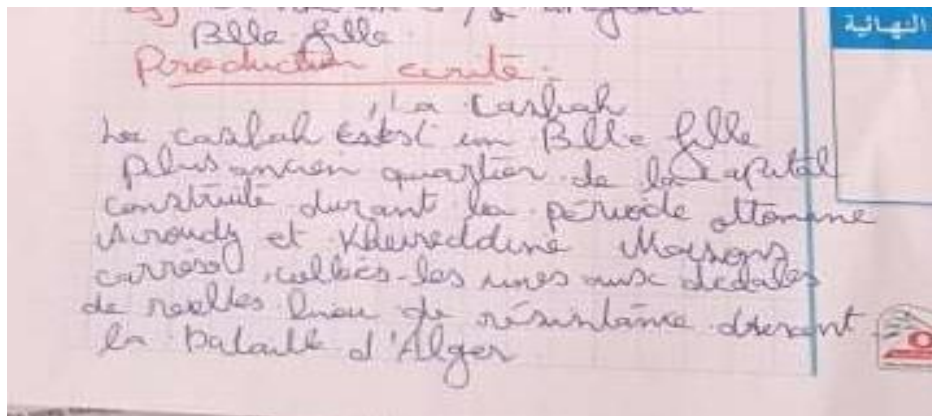 Blle fille
النهائية
Production ecrité.
La Casbah
La casbah estest un Blle fille
plus ancien quartier de la capital
construite durant la période ottomane
Aroudj et Kheireddine Maisons
collées les unes aux dedales
de reelles lieu de résistance durant
la Bataille d'Alger